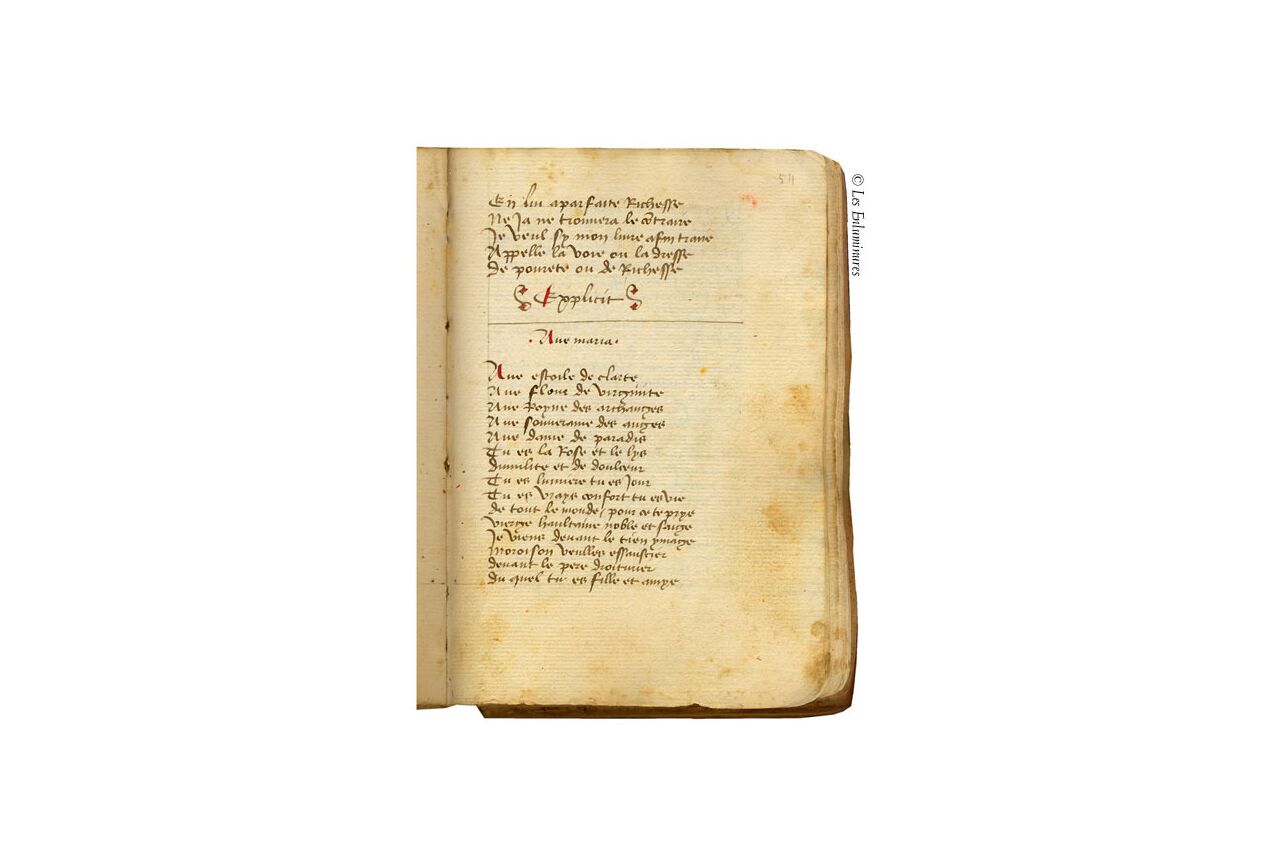 54
En lui a parfaite Richesse
Ne Ja ne trouuera le cõtraire
Je veul sy mon liure afin traire
Appelle la voie ou la dresse
De pourete ou de Richesse
Explicit
Aue maria
Aue estoile de clarte
Aue flour de virginite
Aue Royne des archanges
Aue souueraine des anges
Aue dame de paradis
Tu es la Rose et le lys
dumilite et de doulceur
Tu es lumiere tu es Jour
Tu es vrays confort tu es vie
de tout le monde / pour ce te prye
vierge haultaine noble et saige
Je viens deuant le tien ymaige
Moroison veulles essaucier
deuant le pere droiturier
du quel tu es fille et amye
© Les Enluminures